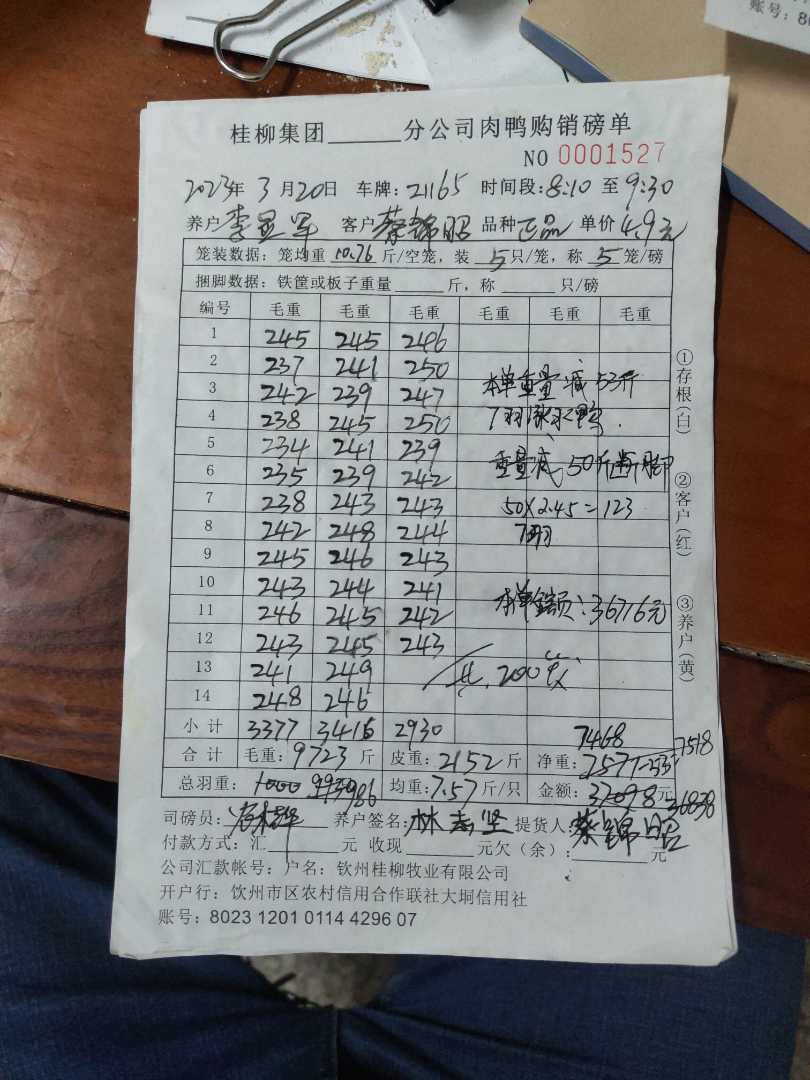 账号：8
桂柳集团______分公司肉鸭购销磅单
NO 0001527
2023年 3月20日 车牌：21165 时间段：8:10 至 9:30
养户 李显军 客户 蔡锦昭 品种 正品 单价 4.9元
笼装数据：笼均重 10.76 斤/空笼，装 5 只/笼，称 5 笼/磅
捆脚数据：铁筐或板子重量______斤，称______只/磅
编号 毛重 毛重 毛重 毛重 毛重 毛重
1 245 245 246
2 237 241 250
3 242 239 247 本单重量减53斤
4 238 245 250 7羽
5 234 241 239
6 235 239 242 重量减50斤断脚
7 238 243 243 50×2.45=123
8 242 248 244 7羽
9 245 246 243
10 243 244 241
11 246 245 242 本单金额：36716元
12 243 245 243
13 241 249 共200笼
14 248 246
小计 3377 3416 2930 7468 7518
合计 毛重：9723斤 皮重：2152斤 净重：7571
总羽重：1000 993 986 均重：7.57斤/只 金额：37098元 36838
司磅员： 养户签名：林志坚 提货人：蔡锦昭
付款方式：汇______元 收现______元欠（余）：______元
公司汇款帐号：户名：钦州桂柳牧业有限公司
开户行：饮州市区农村信用合作联社大垌信用社
账号：8023 1201 0114 4296 07
①存根（白）
②客户（红）
③养户（黄）